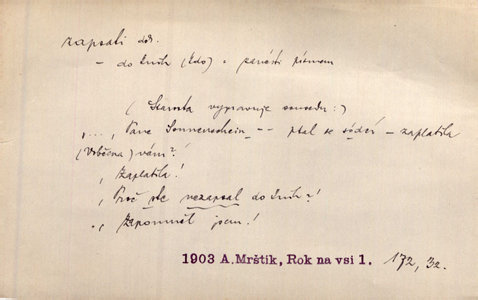 zapsati dok.
– do knih (kdo) = pověsti písmem
(Starosta vypravuje sousedu:)
„..., Pane Sonnenschein – – ptal se súdeň – zaplatila
(Vrběčna) vám?‘
‚Zaplatila!‘
‚Proč ste nezapsal do knih?!
‚Zapomněl jsem!
1903 A. Mrštík, Rok na vsi 1. 172, 32.